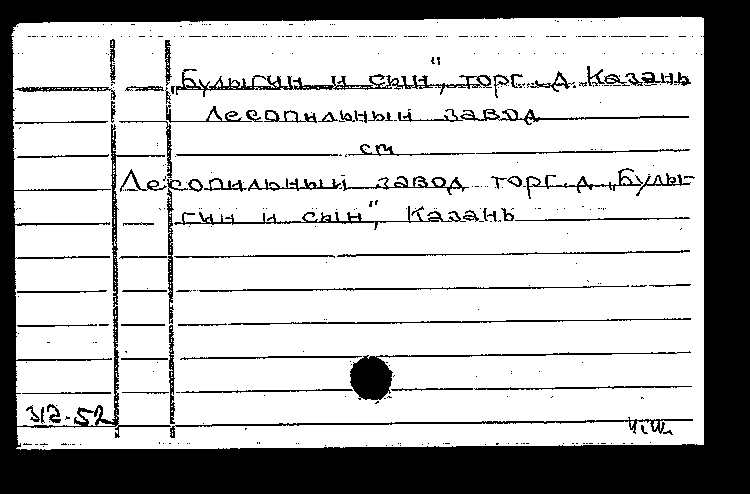 „Булыгин и сын", торг. д. Казань
Лесопильный завод
см
Лесопильный завод торг. д. „Булы-
гин и сын", Казань
312-52